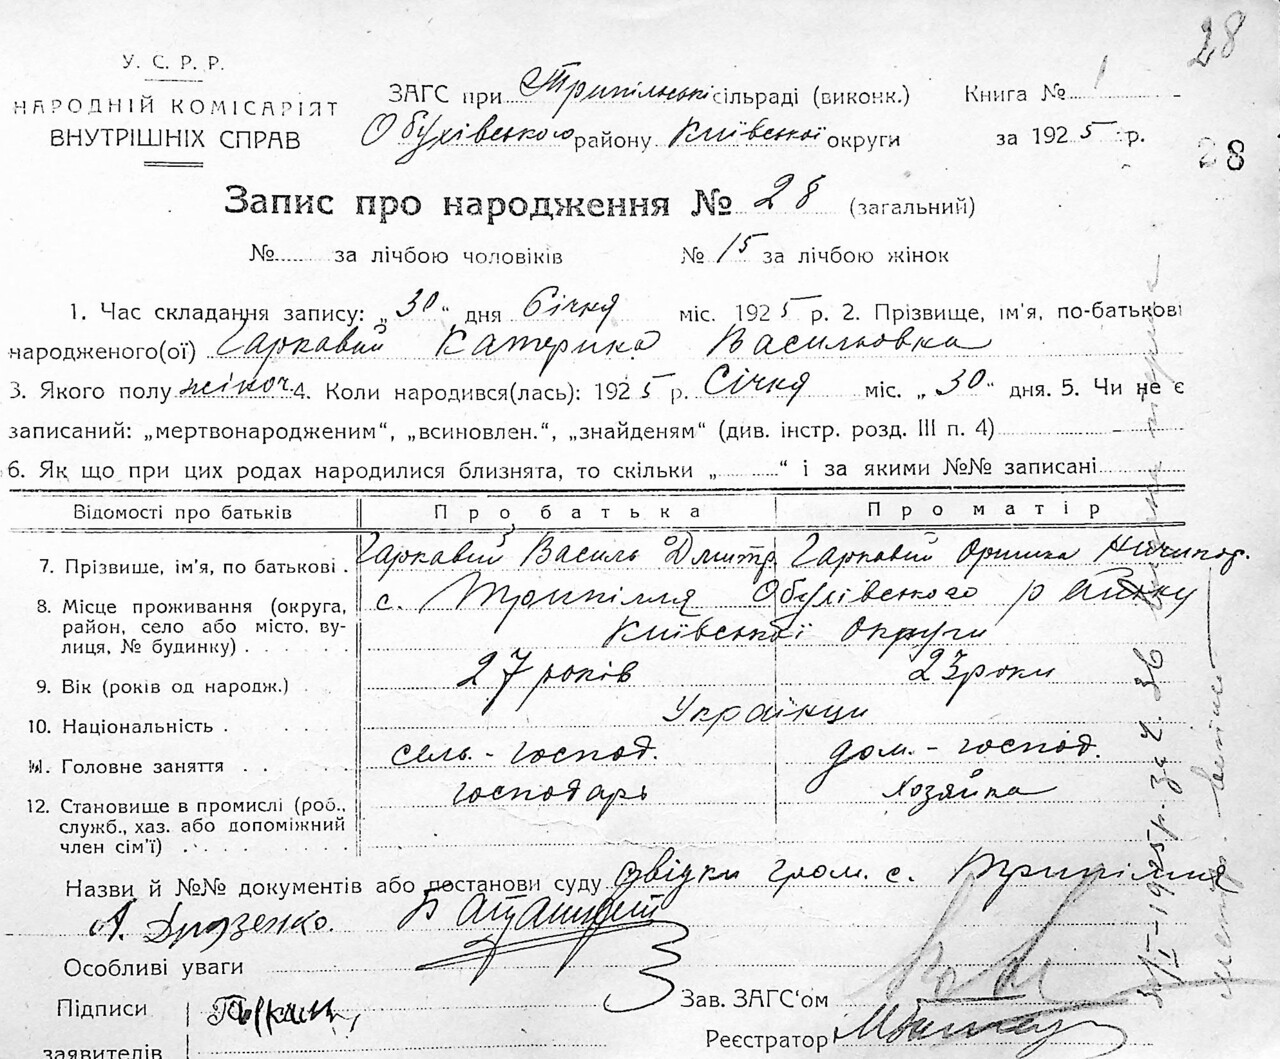 28
У. С. Р. Р.
НАРОДНІЙ КОМІСАРІЯТ
ВНУТРІШНІХ СПРАВ
ЗАГС при Трипільські сільраді (виконк.)
Обухівського району Київської округи
Книга № 1
за 1925 р.
28
Запис про народження № 28 (загальний)
№...... за лічбою чоловіків № 15 за лічбою жінок
1. Час складання запису: „30“ дня Січня міс. 1925 р. 2. Прізвище, ім'я, по-батькові
народженого(ої) Гаркавий Катерина Васильовка
3. Якого полу жіноч. 4. Коли народився(лась): 1925 р. Січня міс. „30“ дня. 5. Чи не є
записаний: „мертвонародженим“, „всиновлен.“, „знайденям“ (див. інстр. розд. III п. 4)
6. Як що при цих родах народилися близнята, то скільки „..........“ і за якими №№ записані
Відомості про батьків Про батька Про матір
7. Прізвище, ім'я, по батькові . Гаркавий Василь Дмитр. Гаркавий Оришка Ничипор.
8. Місце проживання (округа, район, село або місто, вулиця, № будинку) с. Трипілля Обухівського району
Київської округи
9. Вік (років од народж.) 27 років 23 роки
10. Національність . Українци
11. Головне заняття . . сель.-господ. дом.-господ.
12. Становище в промислі (роб., служб., хаз. або допоміжний член сім'ї) . господарь хозяйка
Назви й №№ документів або постанови суду свідки гром. с. Трипілля
А. Дрозенко.
Особливі уваги
Підписи
заявителів
Зав. ЗАГС'ом
Реєстратор